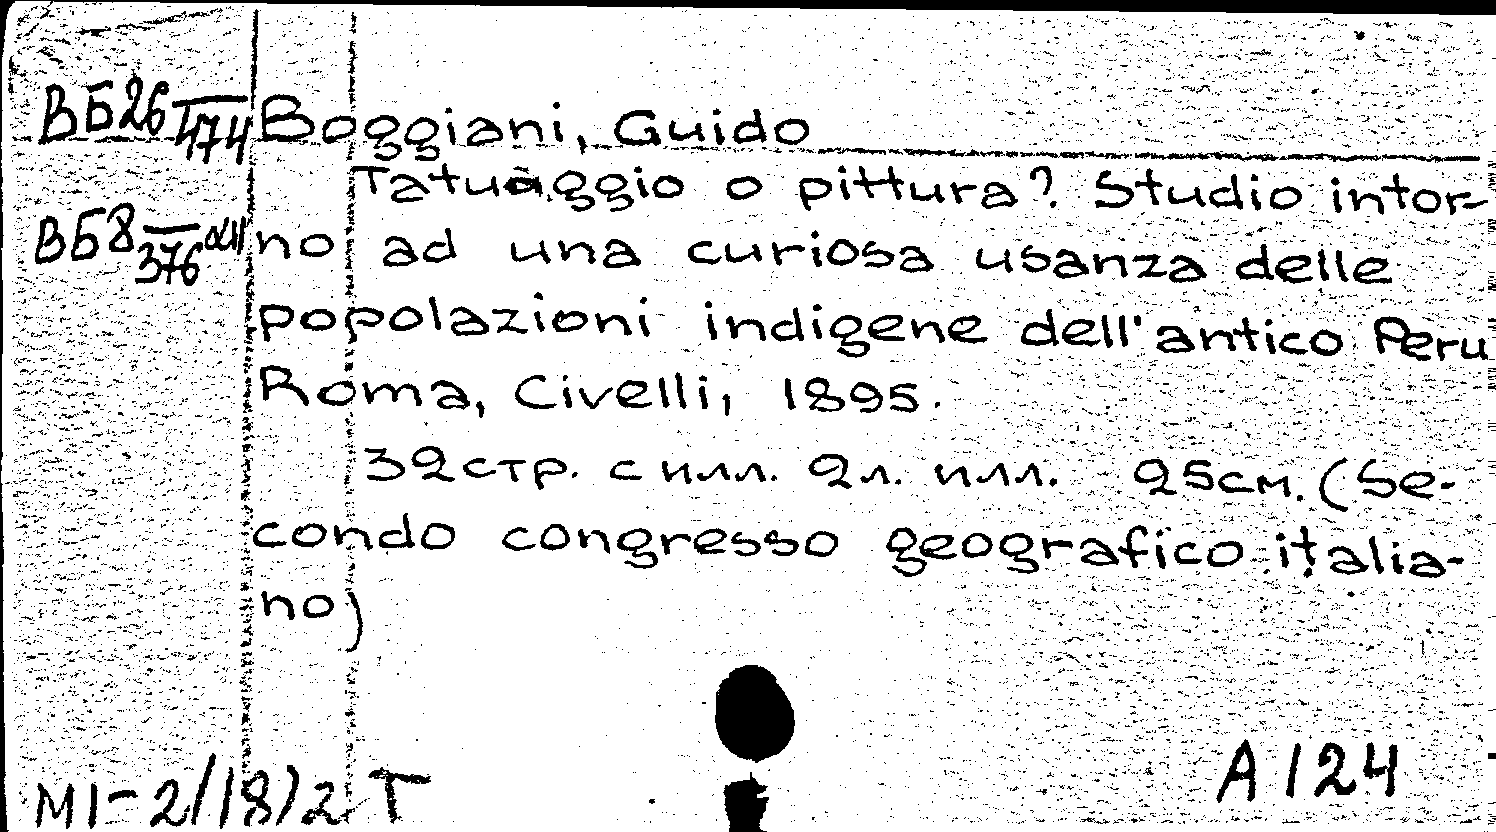 ВБ26/474 Boggiani, Guido
Tatuaggio o pittura? Studio intor-
ВБ8/376 αΙΙ no ad una curiosa usanza delle
popolazioni indigene dell'antico Peru
Roma, Civelli, 1895.
32стр. с илл. 2л. илл. 25см. (Se-
condo congresso geografico italia-
no)
A 124
MI-2/18)2 T